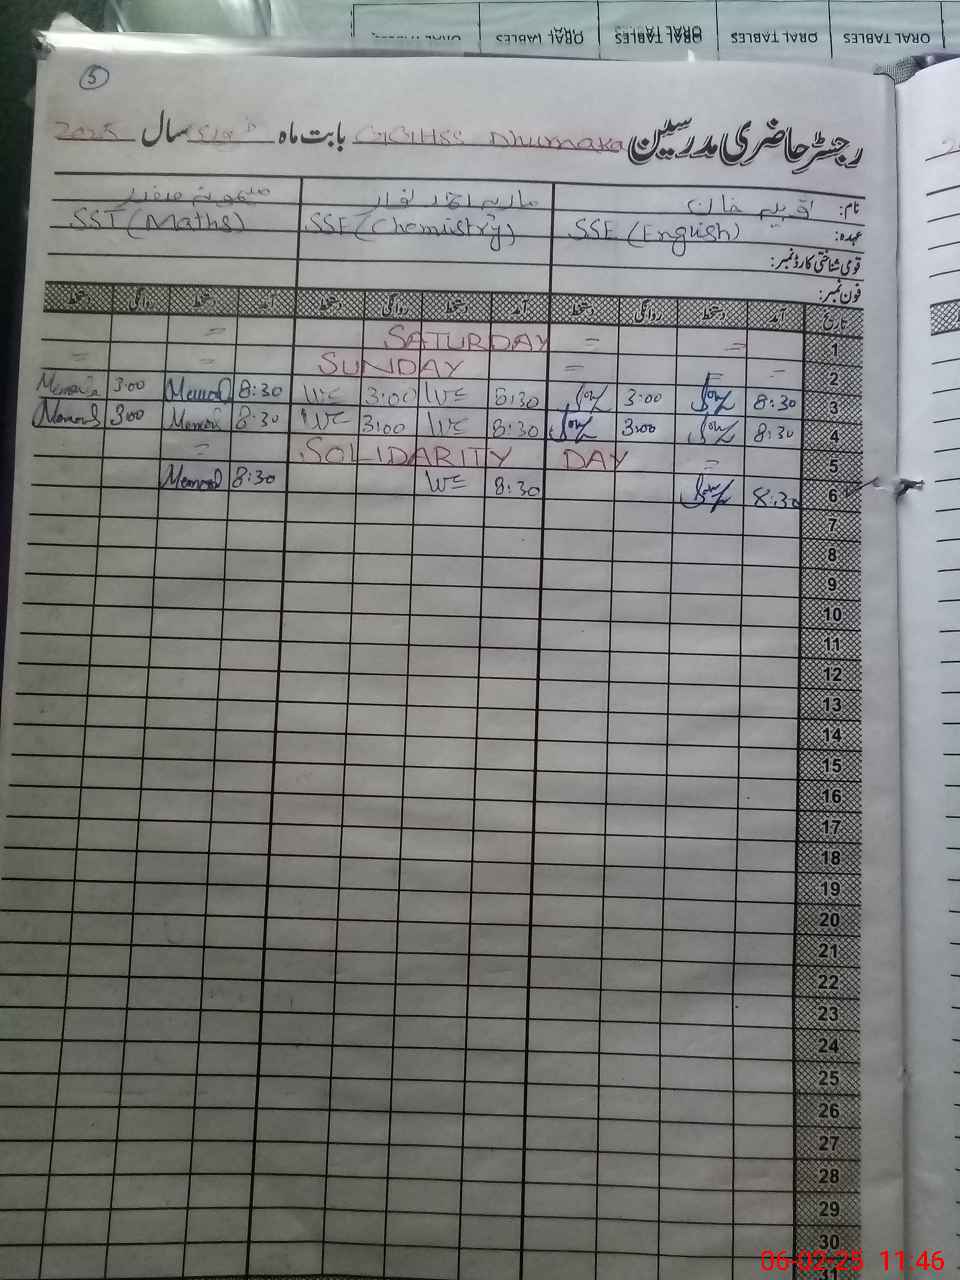 ORAL TABLES ORAL TABLES ORAL TABLES ORAL TABLES
5
رجسٹر حاضری مدرسین GGHSS Dhumaka بابت ماہ سال 2025
نام:
عہدہ: SSE (English) SSE (Chemistry) SST (Maths)
قومی شناختی کارڈ نمبر:
فون نمبر:
تاریخ آمد دستخط روانگی دستخط آمد دستخط روانگی دستخط آمد دستخط روانگی دستخط
1 = = SATURDAY =
2 - = = SUNDAY = =
3 8:30 3:00 8:30 3:00 8:30 3:00
4 8:30 3:00 8:30 3:00 8:30 3:00
5 = SOLIDARITY DAY =
6 8:30 8:30 8:30
7
8
9
10
11
12
13
14
15
16
17
18
19
20
21
22
23
24
25
26
27
28
29
30
31
06-02-25 11:46